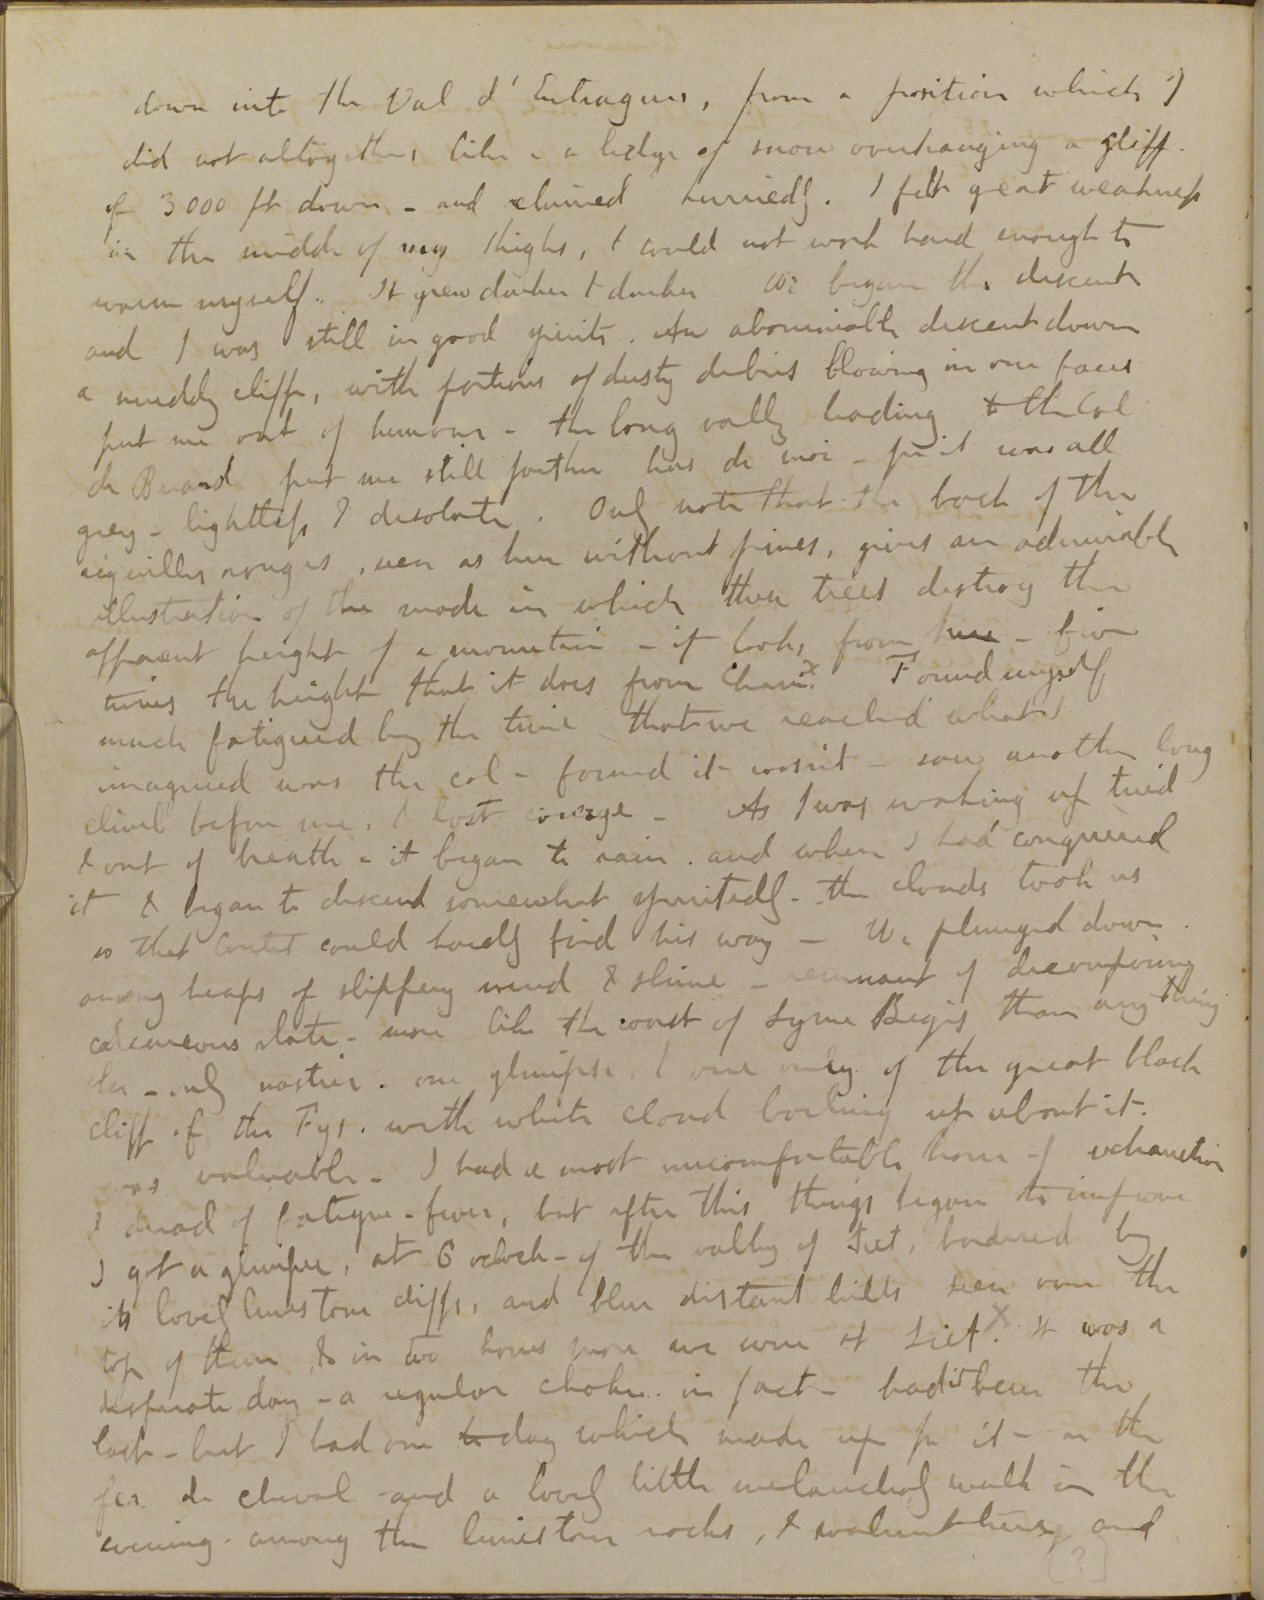 down into the Val d'Entragues, from a position which I
did not altogether like - a ledge of snow overhanging a cliff
of 3000 ft down - and climbed hurriedly. I felt great weakness
in the middle of my thighs, & could not work hard enough to
warm myself. It grew darker & darker. We began the descent
and I was still in good spirits. An abominable descent down
a muddy cliff, with portions of dusty debris blowing in our faces
put me out of humour - the long vally leading to the Col
de Berard put me still further hors de moi - for it was all
grey - lightless & desolate. Only note that the back of the
aiguilles rouges, seen as here without pines, gives an admirable
illustration of the mode in which these trees destroy the
apparent height of a mountain - it looks, from here - five
times the height that it does from Cham.x Found myself
much fatigued by the time that we reached what I
imagined was the col - found it wasn't - saw another long
climb before me, & lost courage - As I was working up tired
& out of breath - it began to rain. and when I had conquered
it & began to descend somewhat spiritedly - the clouds took us
so that Coutet could hardly find his way - We plunged down
among heaps of slippery mud & slime - remnant of decomposing
calcareous slate - more like the coast of Lyme Regis than anything
else - only nastier. one glimpse & one only of the great black
cliff of the Fys. with white cloud boiling up about it.
was valuable - I had a most uncomfortable hour of exhaustion
& dread of fatigue-fever, but after this things began to improve
I got a glimpse, at 6 oclock - of the valley of Sixt, bordered by
its lovely limestone cliffs, and blue distant hills seen over the
top of them & in two hours more we were at Sixt.x It was a
desperate day - a regular choker. in fact - had it been the
last - but I had one to day which made up for it - in the
fer de cheval - and a lovely little melancholy walk in the
evening - among the limestone rocks, & walnut trees, and
[?]